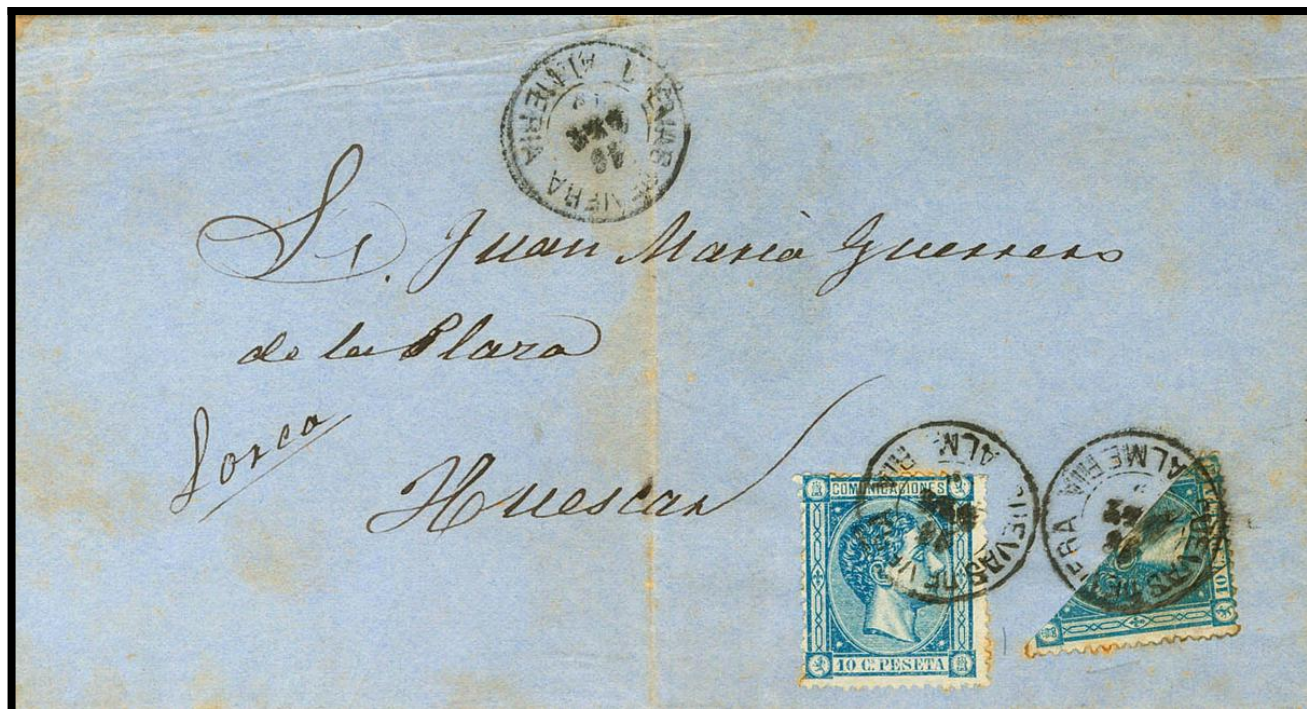 CUEVAS DE VERA
ALMERIA
Sr. Juan Maria Guerrero
de la Plaza
Lorca
Huescar
COMUNICACIONES
10 C. PESETA
CUEVAS DE VERA
ALMERIA
CUEVAS DE VERA
ALMERIA
10 C.